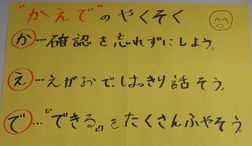 "かえで"のやくそく
か…確認を忘れずにしよう。
え…えがおではっきり話そう。
で…『できる』をたくさんふやそう